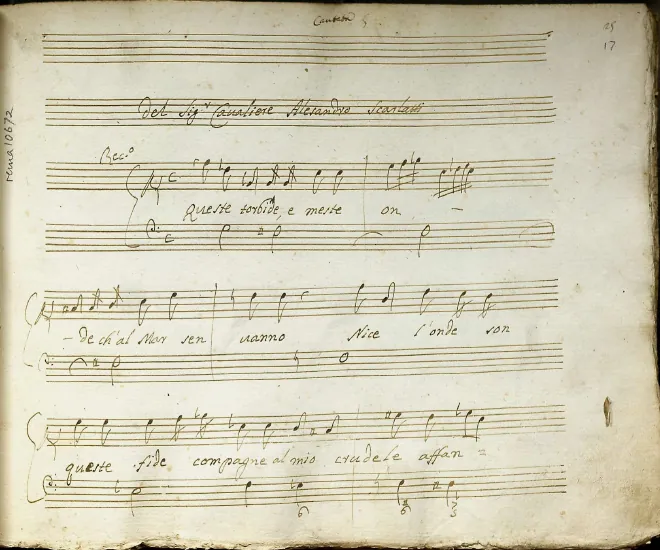 Cantata
25
17
Del Sigr Cavaliere Alesandro Scarlatti
rema10672
Reco
Queste torbide, e meste on -
- de ch'al Mar sen vanno Nice l'onde son
queste fide compagne al mio crudele affan =
6 6 7
5